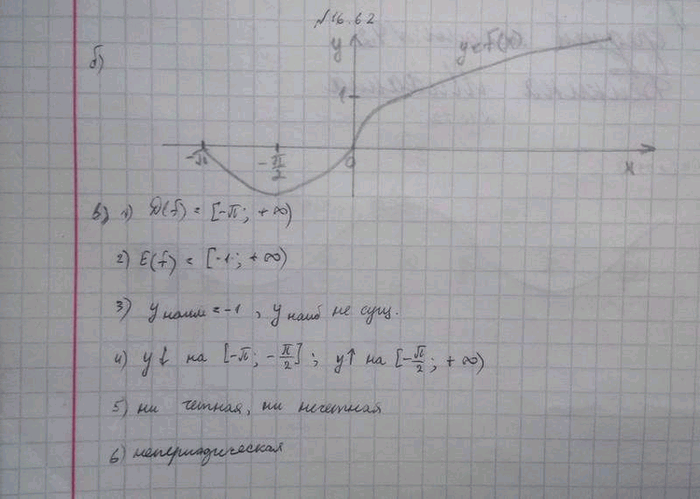 №16.62
б)
y
y=f(x)
1
-π
-π/2
0
x
в) 1) D(f) = [-π; +∞)
2) E(f) = [-1; +∞)
3) y наим = -1, y наиб не сущ.
4) y↓ на [-π; -π/2]; y↑ на [-π/2; +∞)
5) ни четная, ни нечетная
6) непериодическая